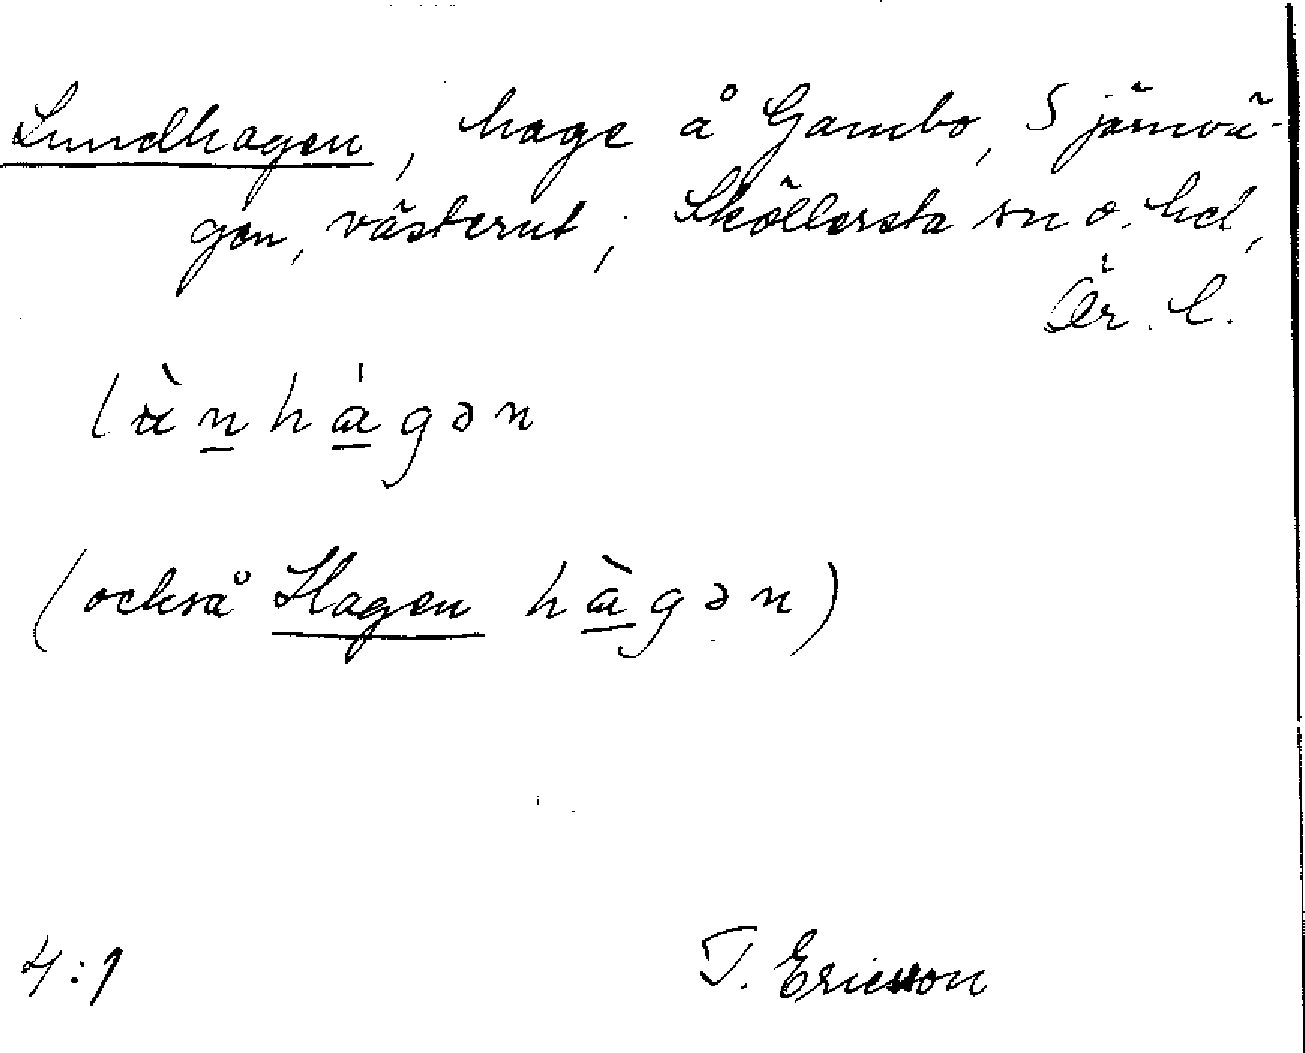 Lundhagen, hage å Gambo, S järnvä-
gen, västerut; Sköllersta sn o. hd,
Ör. l.
lu̇̀nhágən
(också Hagen hàgən)
4:1 T. Ericsson